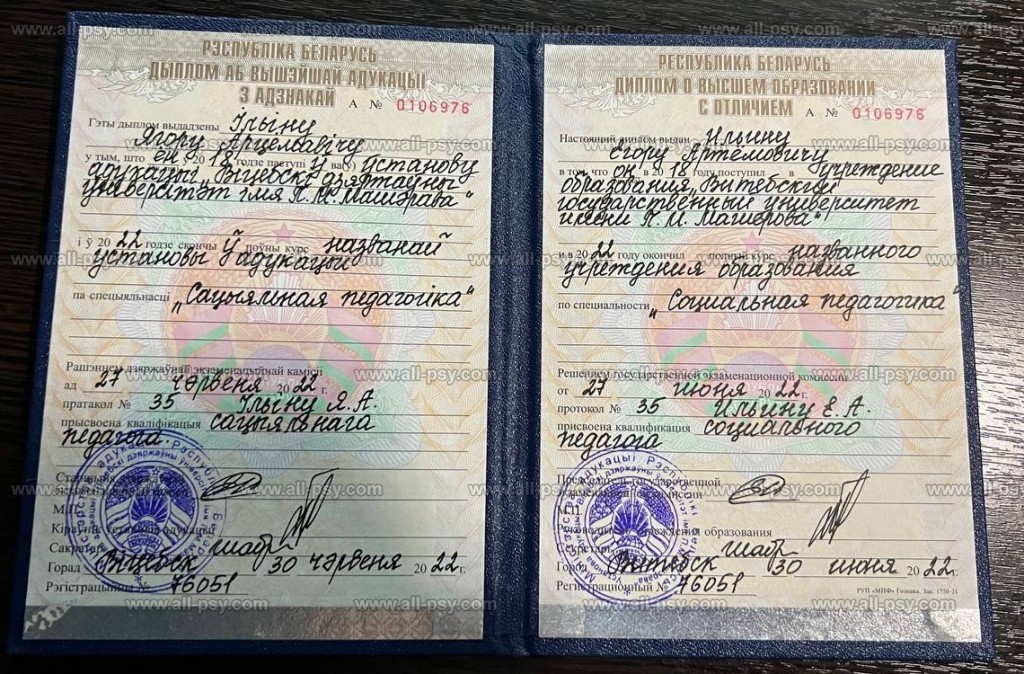 РЭСПУБЛІКА БЕЛАРУСЬ
ДЫПЛОМ АБ ВЫШЭЙШАЙ АДУКАЦЫІ
З АДЗНАКАЙ
А № 0106976
Гэты дыплом выдадзены Ільіну
Ягору Арцемавічу
у тым, што ён у 20 18 годзе паступіў у ва(ў) установу
адукацыі „Віцебскі дзяржаўны
універсітэт імя П.М. Машэрава“
і ў 20 22 годзе скончыў поўны курс названай
установы адукацыі
па спецыяльнасці „Сацыяльная педагогіка“
Рашэннем дзяржаўнай экзаменацыйнай камісіі
ад 27 чэрвеня 20 22 г.
пратакол № 35 Ільіну Я.А.
прысвоена кваліфікацыя сацыяльнага
педагога.
Старшыня
М.П.
Кіраўнік установы адукацыі
Сакратар
Горад Віцебск 30 чэрвеня 20 22 г.
Рэгістрацыйны № 76051
РЕСПУБЛИКА БЕЛАРУСЬ
ДИПЛОМ О ВЫСШЕМ ОБРАЗОВАНИИ
С ОТЛИЧИЕМ
А № 0106976
Настоящий диплом выдан Ильину
Егору Артёмовичу
в том, что он в 20 18 году поступил в Учреждение
образования „Витебский
государственный университет
имени П.М. Машерова“
и в 20 22 году окончил полный курс названного
учреждения образования
по специальности „Социальная педагогика“
Решением государственной экзаменационной комиссии
от 27 июня 20 22 г.
протокол № 35 Ильину Е.А.
присвоена квалификация социального
педагога
Председатель государственной
экзаменационной комиссии
М.П.
Руководитель учреждения образования
Секретарь
Город Витебск 30 июня 20 22 г.
Регистрационный № 76051
РУП «МПФ» Гознака. Зак. 1730-21
www.all-psy.com